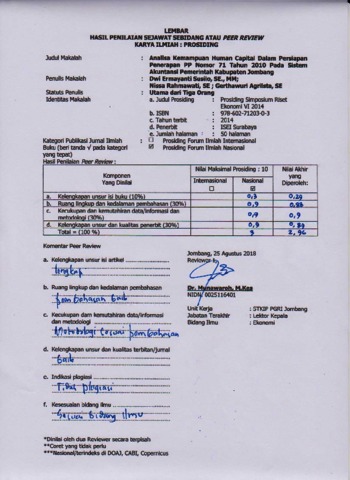 LEMBAR
HASIL PENILAIAN SEJAWAT SEBIDANG ATAU PEER REVIEW
KARYA ILMIAH : PROSIDING
Judul Makalah : Analisa Kemampuan Human Capital Dalam Persiapan
Penerapan PP Nomor 71 Tahun 2010 Pada Sistem
Akuntansi Pemerintah Kabupaten Jombang
Penulis Makalah : Dwi Ermayanti Susilo, SE., MM;
Nissa Rahmawati, SE ; Gerthawuri Agrilata, SE
Status Penulis : Utama dari Tiga Orang
Identitas Makalah : a. Judul Prosiding : Prosiding Simposium Riset
Ekonomi VI 2014
b. ISBN : 978-602-71203-0-3
c. Tahun terbit : 2014
d. Penerbit : ISEI Surabaya
e. Jumlah halaman : 50 halaman
Kategori Publikasi Jurnal Ilmiah : ☐ Prosiding Forum Ilmiah Internasional
Buku (beri tanda √ pada kategori ☑ Prosiding Forum Ilmiah Nasional
yang tepat)
Hasil Penilaian Peer Review :
Komponen Yang Dinilai Nilai Maksimal Prosiding : 10 Nilai Akhir yang Diperoleh:
Internasional ☐ Nasional ☑
a. Kelengkapan unsur isi buku (10%) 0,3 0,29
b. Ruang lingkup dan kedalaman pembahasan (30%) 0,9
c. Kecukupan dan kemutahiran data/informasi dan metodologi (30%) 0,9 0,9
d. Kelengkapan unsur dan kualitas penerbit (30%) 0,9
Total = (100 %) 3 2,96
Komentar Peer Review
Jombang, 25 Agustus 2018
Reviewer
a. Kelengkapan unsur isi artikel
lengkap
b. Ruang lingkup dan kedalaman pembahasan
pembahasan baik
Dr. Munawaroh, M.Kes
NIDN/ 0025116401
c. Kecukupan dam kemutahiran data/informasi
dan metodologi
Metodologi sesuai pembahasan
Unit Kerja : STKIP PGRI Jombang
Jabatan Terakhir : Lektor Kepala
Bidang Ilmu : Ekonomi
d. Kelengkapan unsur dan kualitas terbitan/jurnal
Baik
e. Indikasi plagiasi
Tidak plagiasi
f. Kesesuaian bidang ilmu
Sesuai Bidang Ilmu
*Dinilai oleh dua Reviewer secara terpisah
**Coret yang tidak perlu
***Nasional/terindeks di DOAJ, CABI, Copernicus